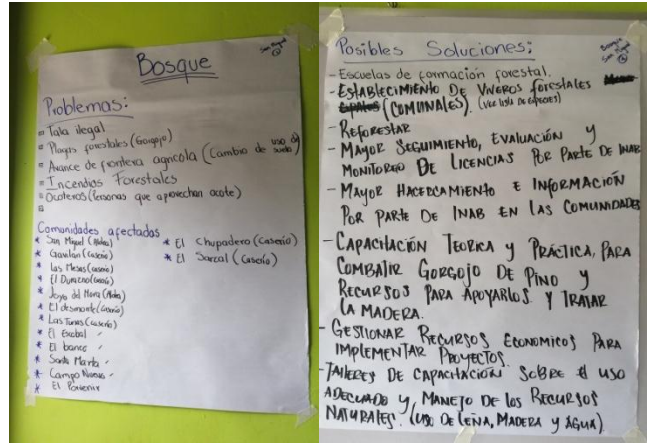 Bosque
San Miguel
Problemas:
Tala ilegal
Plagas forestales (Gorgojo)
Avance de frontera agricola (Cambio de uso de suelo)
Incendios Forestales
Ocoteros (Personas que aprovechan ocote)
Comunidades afectadas
* San Miguel (Aldea)
* Gavilán (caserío)
* Las Mesas (caserío)
* El Durazno (caserío)
* Joya del Mora (Aldea)
* El desmonte (caserío)
* Las Tunas (caserío)
* El
* El banco "
* Santa Marta "
* Campo Nuevo "
* El Porvenir
* El Chupadero (caserío)
* El Sarcal (Caserío)
Posibles Soluciones:
Bosque
San Miguel
- Escuelas de formación forestal.
- ESTABLECIMIENTO DE VIVEROS forestales
(COMUNALES). (VER lista DE ESPECIES)
- REFORESTAR
- MAYOR SEGUIMIENTO, EVALUACIÓN Y
MONITOREO DE LICENCIAS POR PARTE DE INAB
- MAYOR HACERCAMIENTO E INFORMACIÓN
POR PARTE DE INAB EN LAS COMUNIDADES
- CAPACITACIÓN TEORICA Y PRÁCTICA, PARA
COMBATIR GORGOJO DE PINO Y
RECURSOS PARA APOYARLOS Y TRATAR
LA MADERA.
- GESTIONAR RECURSOS ECONOMICOS PARA
IMPLEMENTAR PROYECTOS.
- TALLERES DE CAPACITACIÓN SOBRE el USO
ADECUADO Y MANEJO DE LOS RECURSOS
NATURALES. (USO DE LEÑA, MADERA Y AGUA)